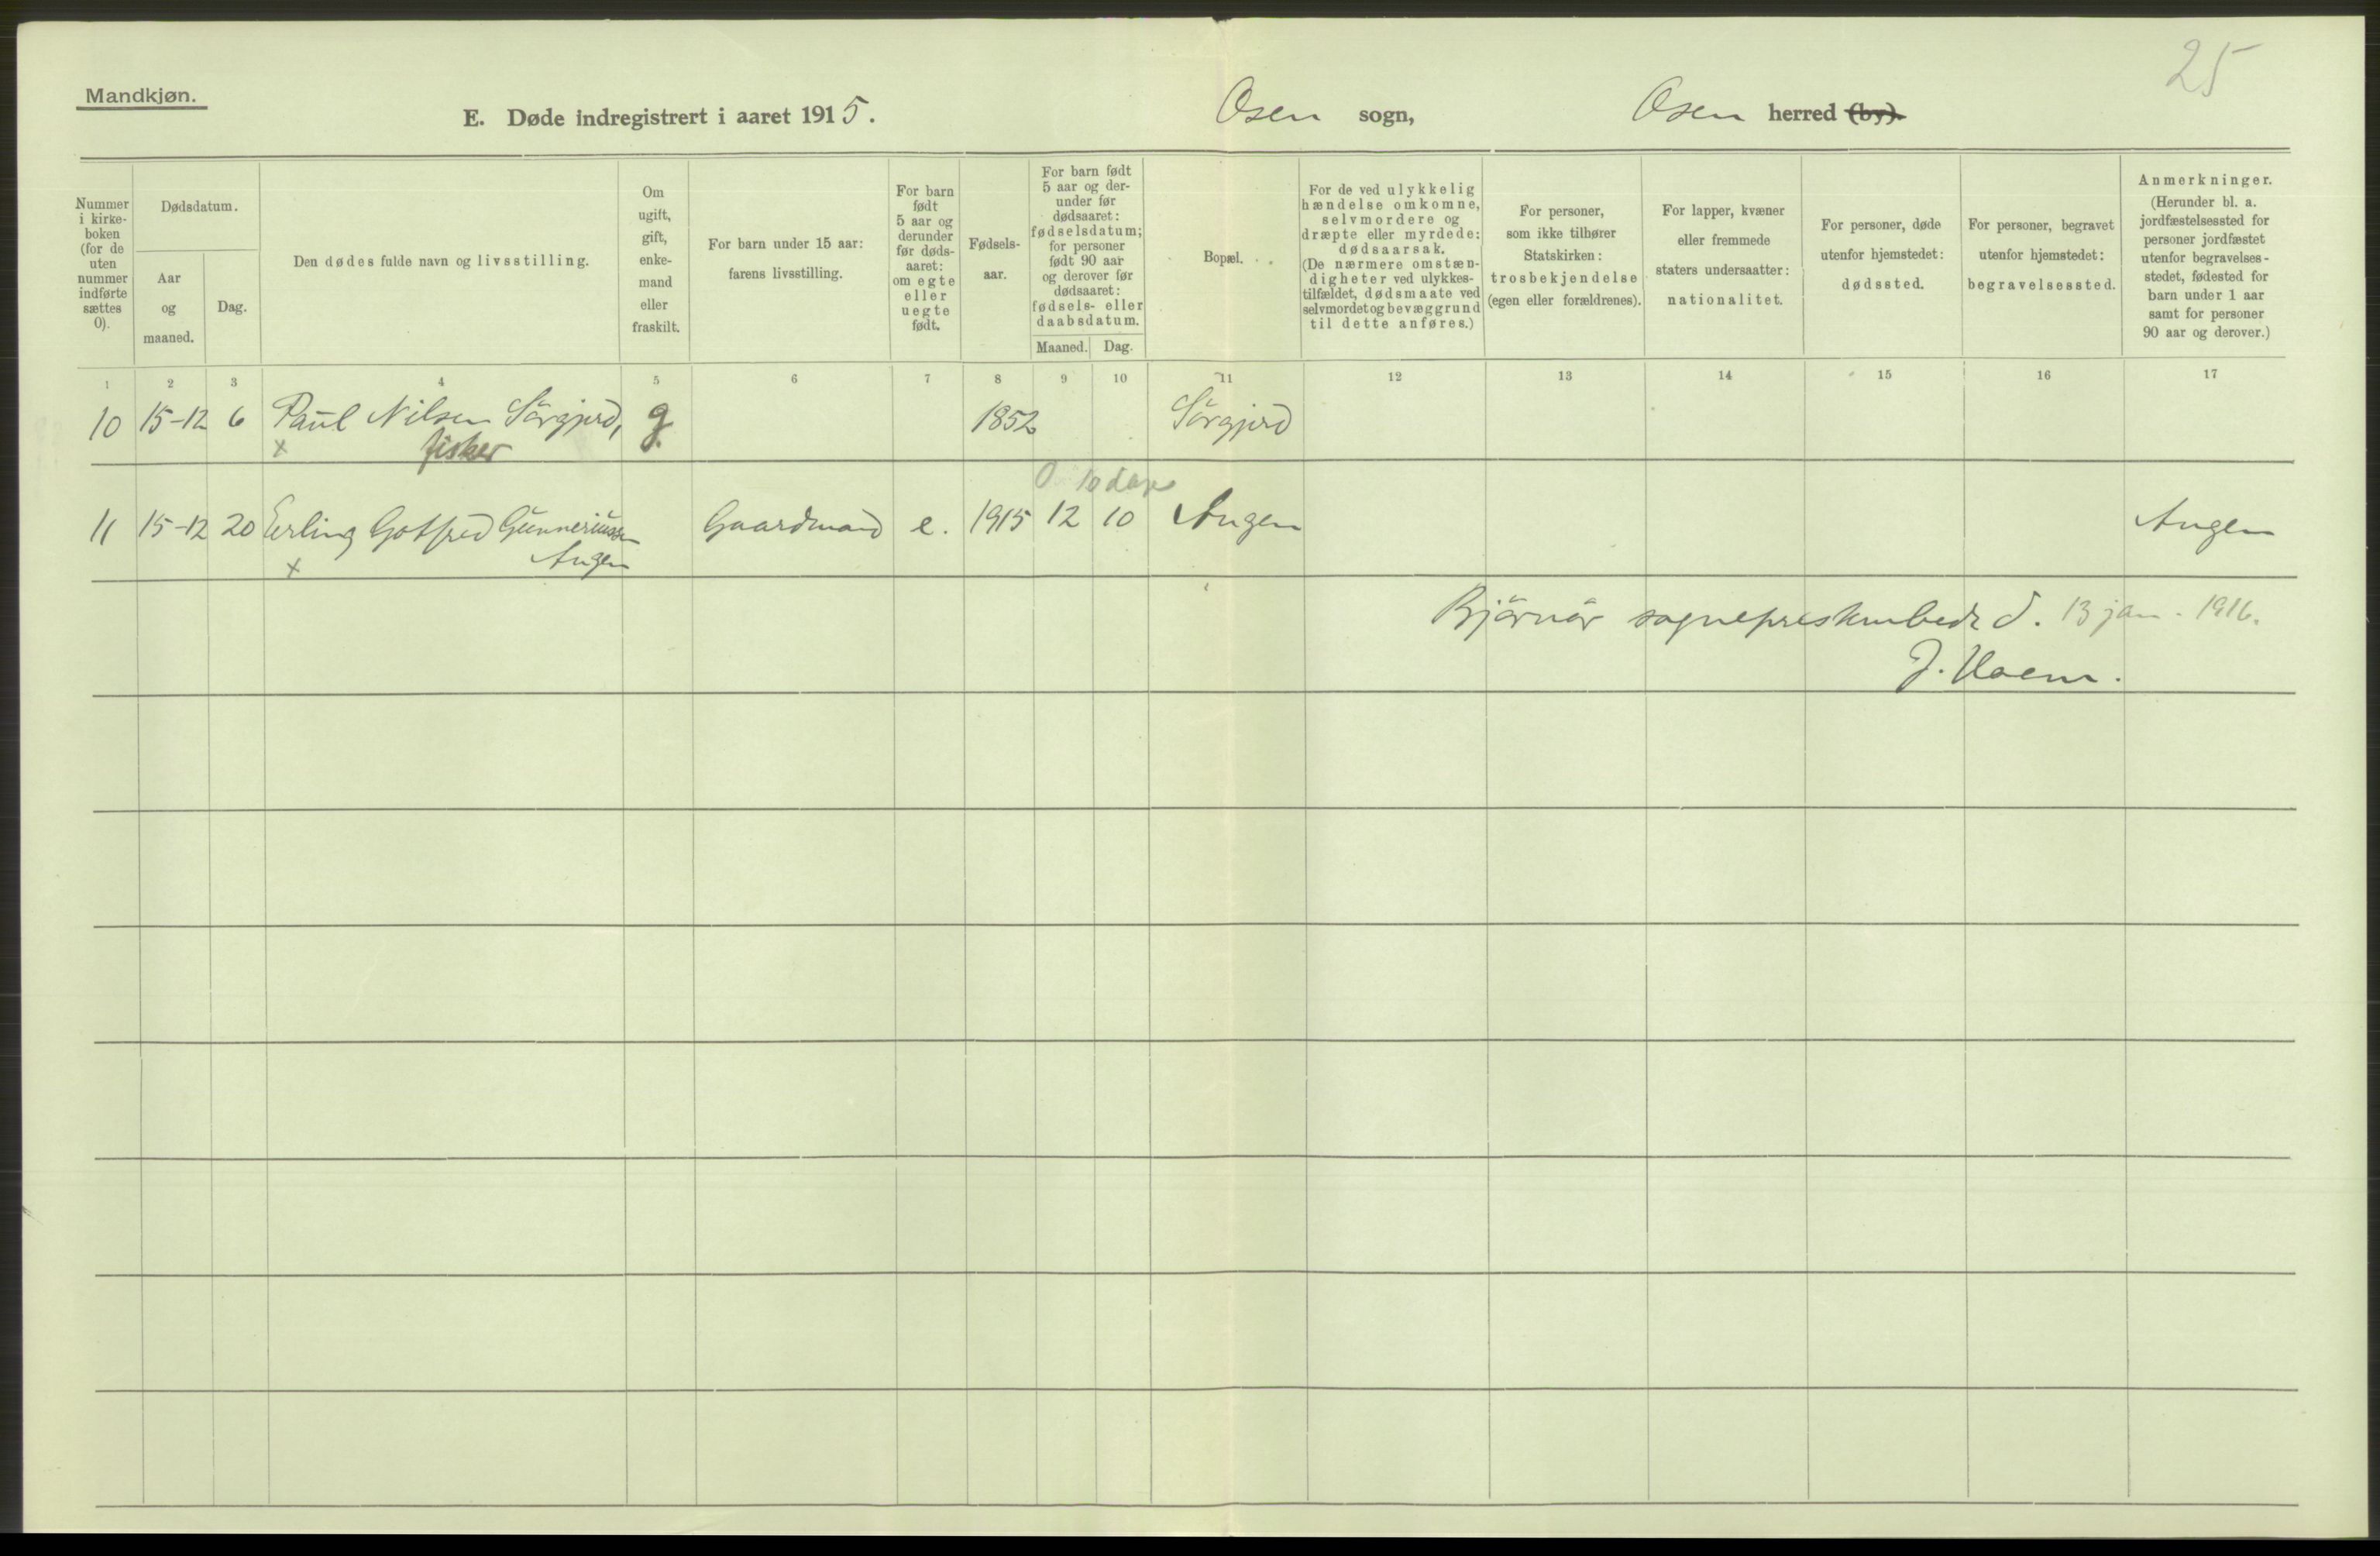 25
Mandkjøn.
E. Døde indregistrert i aaret 1915. Osen sogn, Osen herred (by).
Nummer i kirke-boken (for de uten nummer indførte sættes 0).
Dødsdatum.
Aar og maaned.
Dag.
Den dødes fulde navn og livsstilling.
Om ugift, gift, enke-mand eller fraskilt.
For barn under 15 aar: farens livsstilling.
For barn født 5 aar og derunder før døds-aaret: om egte eller uegte født.
Fødsels-aar.
For barn født 5 aar og der-under før dødsaaret: fødselsdatum; for personer født 90 aar og derover før dødsaaret: fødsels- eller daabsdatum.
Maaned. Dag.
Bopæl.
For de ved ulykkelig hændelse omkomne, selvmordere og dræpte eller myrdede: dødsaarsak. (De nærmere omstæn-digheter ved ulykkes-tilfældet, dødsmaate ved selvmordet og bevæggrund til dette anføres.)
For personer, som ikke tilhører Statskirken: trosbekjendelse (egen eller forældrenes).
For lapper, kvæner eller fremmede staters undersaatter: nationalitet.
For personer, døde utenfor hjemstedet: dødssted.
For personer, begravet utenfor hjemstedet: begravelsessted.
Anmerkninger. (Herunder bl. a. jordfæstelsessted for personer jordfæstet utenfor begravelses-stedet, fødested for barn under 1 aar samt for personer 90 aar og derover.)
1 2 3 4 5 6 7 8 9 10 11 12 13 14 15 16 17
10 15-12 6 Paul Nilsen Sörgjerd, g. 1852 Sörgjerd
x fisker
0 10 dage
11 15-12 20 Erling Gotfred Gunneriussen Gaardmand e. 1915 12 10 Angen Angen
x Angen
Bjørnør sogneprestembede d. 13 jan. 1916.
J. Hoem.